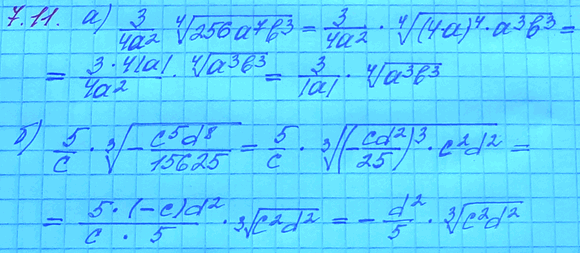 7.11. а) 3/(4a²) ∜(256a⁷b³) = 3/(4a²) · ∜((4a)⁴ · a³b³) =
= (3 · 4|a|)/(4a²) · ∜(a³b³) = 3/|a| · ∜(a³b³)
б) 5/c · ∛(-c⁵d⁸/15625) = 5/c · ∛((-cd²/25)³ · c²d²) =
= (5 · (-c)d²)/(c · 5) · ∛(c²d²) = - d²/5 · ∛(c²d²)